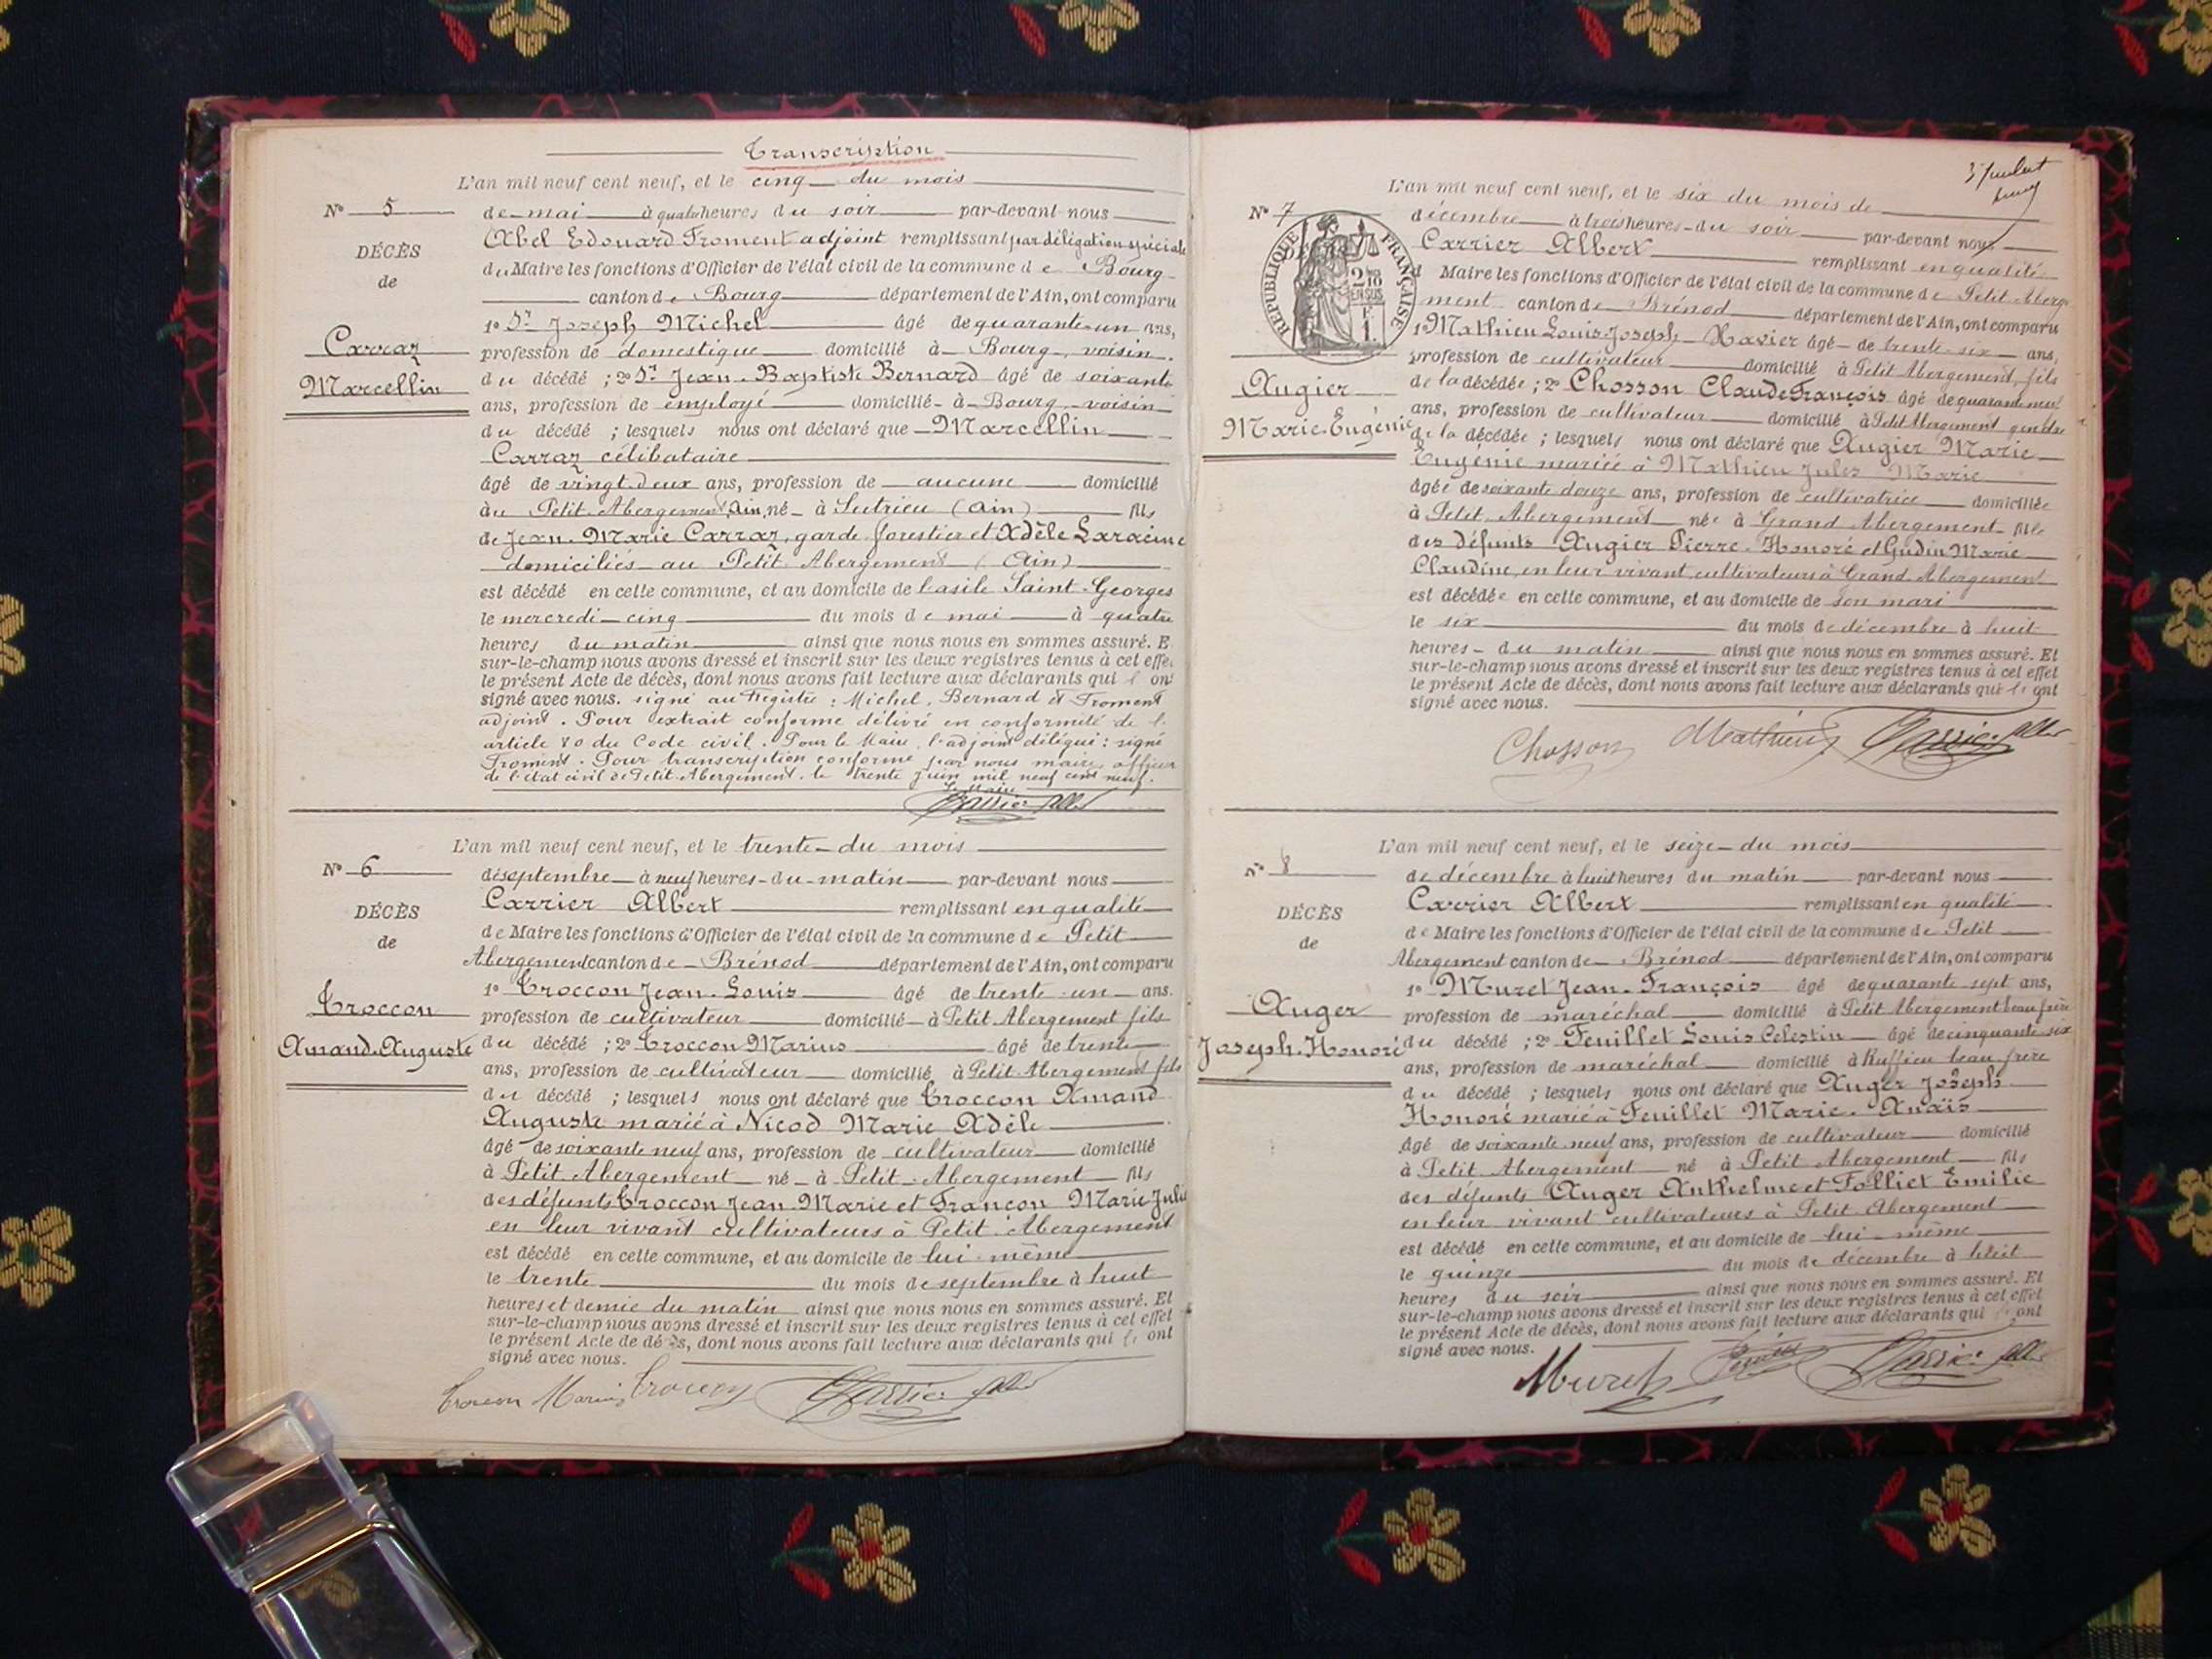 Transcription
L'an mil neuf cent neuf, et le cinq du mois
N° 5
de mai à quatre heures du soir par-devant nous
Abel Edouard Froment adjoint remplissant par délégation spéciale
DÉCÈS
de
du Maire les fonctions d'Officier de l'état civil de la commune de Bourg
canton de Bourg département de l'Ain, ont comparu
1° Sr Joseph Michel âgé de quarante-un ans,
Carraz
Marcellin
profession de domestique domicilié à Bourg, voisin
du décédé ; 2° Sr Jean-Baptiste Bernard âgé de soixante
ans, profession de employé domicilié à Bourg voisin
du décédé ; lesquels nous ont déclaré que Marcellin
Carraz célibataire
âgé de vingt-deux ans, profession de aucune domicilié
au Petit-Abergement, Ain, né à Sutrieu (Ain) fils
de Jean-Marie Carraz, garde forestier et Adèle Laracine
domiciliés au Petit Abergement (Ain)
est décédé en cette commune, et au domicile de l'asile Saint-Georges
le mercredi cinq du mois de mai à quatre
heures du matin ainsi que nous nous en sommes assuré. E
sur-le-champ nous avons dressé et inscrit sur les deux registres tenus à cet effet
le présent Acte de décès, dont nous avons fait lecture aux déclarants qui l'ont
signé avec nous. signé au registre : Michel, Bernard et Froment
adjoint. Pour extrait conforme délivré en conformité de l'
article 80 du Code civil. Pour le Maire, l'adjoint délégué : signé
Froment. Pour transcription conforme par nous maire, officier
de l'état civil de Petit-Abergement, le trente juin mil neuf cent neuf.
Le Maire
L'an mil neuf cent neuf, et le trente du mois
N° 6
de septembre à neuf heures du matin par-devant nous
Carrier Albert remplissant en qualité
DÉCÈS
de
de Maire les fonctions d'Officier de l'état civil de la commune de Petit
Abergement canton de Brénod département de l'Ain, ont comparu
1° Troccon Jean-Louis âgé de trente-un ans.
Troccon
Amand-Auguste
profession de cultivateur domicilié à Petit Abergement fils
du décédé ; 2° Troccon Marius âgé de trente
ans, profession de cultivateur domicilié à Petit-Abergement fils
du décédé ; lesquels nous ont déclaré que Troccon Amand
Auguste marié à Nicod Marie Adèle
âgé de soixante neuf ans, profession de cultivateur domicilié
à Petit Abergement né à Petit-Abergement fils
des défunts Troccon Jean-Marie et Françon Marie Julie
en leur vivant cultivateurs à Petit-Abergement
est décédé en cette commune, et au domicile de lui-même
le trente du mois de septembre à huit
heures et demie du matin ainsi que nous nous en sommes assuré. Et
sur-le-champ nous avons dressé et inscrit sur les deux registres tenus à cet effet
le présent Acte de décès, dont nous avons fait lecture aux déclarants qui l'ont
signé avec nous.
Troccon Marius Troccon Carrier Albert
L'an mil neuf cent neuf, et le six du mois de
N° 7
décembre à trois heures du soir par-devant nous
Carrier Albert remplissant en qualité
RÉPUBLIQUE FRANÇAISE
2/10 EN SUS
F
1.
d Maire les fonctions d'Officier de l'état civil de la commune de Petit-Aberge
ment canton de Brénod département de l'Ain, ont comparu
1° Mathieu Louis-Joseph-Xavier âgé de trente-six ans,
profession de cultivateur domicilié à Petit Abergement, fils
Augier
Marie-Eugénie
de la décédée ; 2° Chosson Claude François âgé de quarante neuf
ans, profession de cultivateur domicilié à Petit Abergement gendre
de la décédée ; lesquels nous ont déclaré que Augier Marie
Eugénie mariée à Mathieu Jules Marie
âgée de soixante douze ans, profession de cultivatrice domiciliée
à Petit Abergement née à Grand Abergement fille
des défunts Augier Pierre-Honoré et Gudin Marie
Claudine, en leur vivant cultivateurs à Grand-Abergement
est décédée en cette commune, et au domicile de son mari
le six du mois de décembre à huit
heures du matin ainsi que nous nous en sommes assuré. Et
sur-le-champ nous avons dressé et inscrit sur les deux registres tenus à cet effet
le présent Acte de décès, dont nous avons fait lecture aux déclarants qui l'ont
signé avec nous.
Chosson Mathieu Carrier Albert
L'an mil neuf cent neuf, et le seize du mois
N° 8
de décembre à huit heures du matin par-devant nous
Carrier Albert remplissant en qualité
DÉCÈS
de
de Maire les fonctions d'Officier de l'état civil de la commune de Petit
Abergement canton de Brénod département de l'Ain, ont comparu
1° Muret Jean-François âgé de quarante sept ans,
Auger
Joseph-Honoré
profession de maréchal domicilié à Petit Abergement beau-frère
du décédé ; 2° Feuillet Louis Célestin âgé de cinquante-six
ans, profession de maréchal domicilié à Ruffieu beau-frère
du décédé ; lesquels nous ont déclaré que Auger Joseph
Honoré marié à Feuillet Marie-Anaïs
âgé de soixante-neuf ans, profession de cultivateur domicilié
à Petit Abergement né à Petit Abergement fils
des défunts Auger Anthelme et Folliet Emilie
en leur vivant cultivateurs à Petit-Abergement
est décédé en cette commune, et au domicile de lui-même
le quinze du mois de décembre à huit
heures du soir ainsi que nous nous en sommes assuré. Et
sur-le-champ nous avons dressé et inscrit sur les deux registres tenus à cet effet
le présent Acte de décès, dont nous avons fait lecture aux déclarants qui l'ont
signé avec nous.
Muret Feuillet Carrier Albert